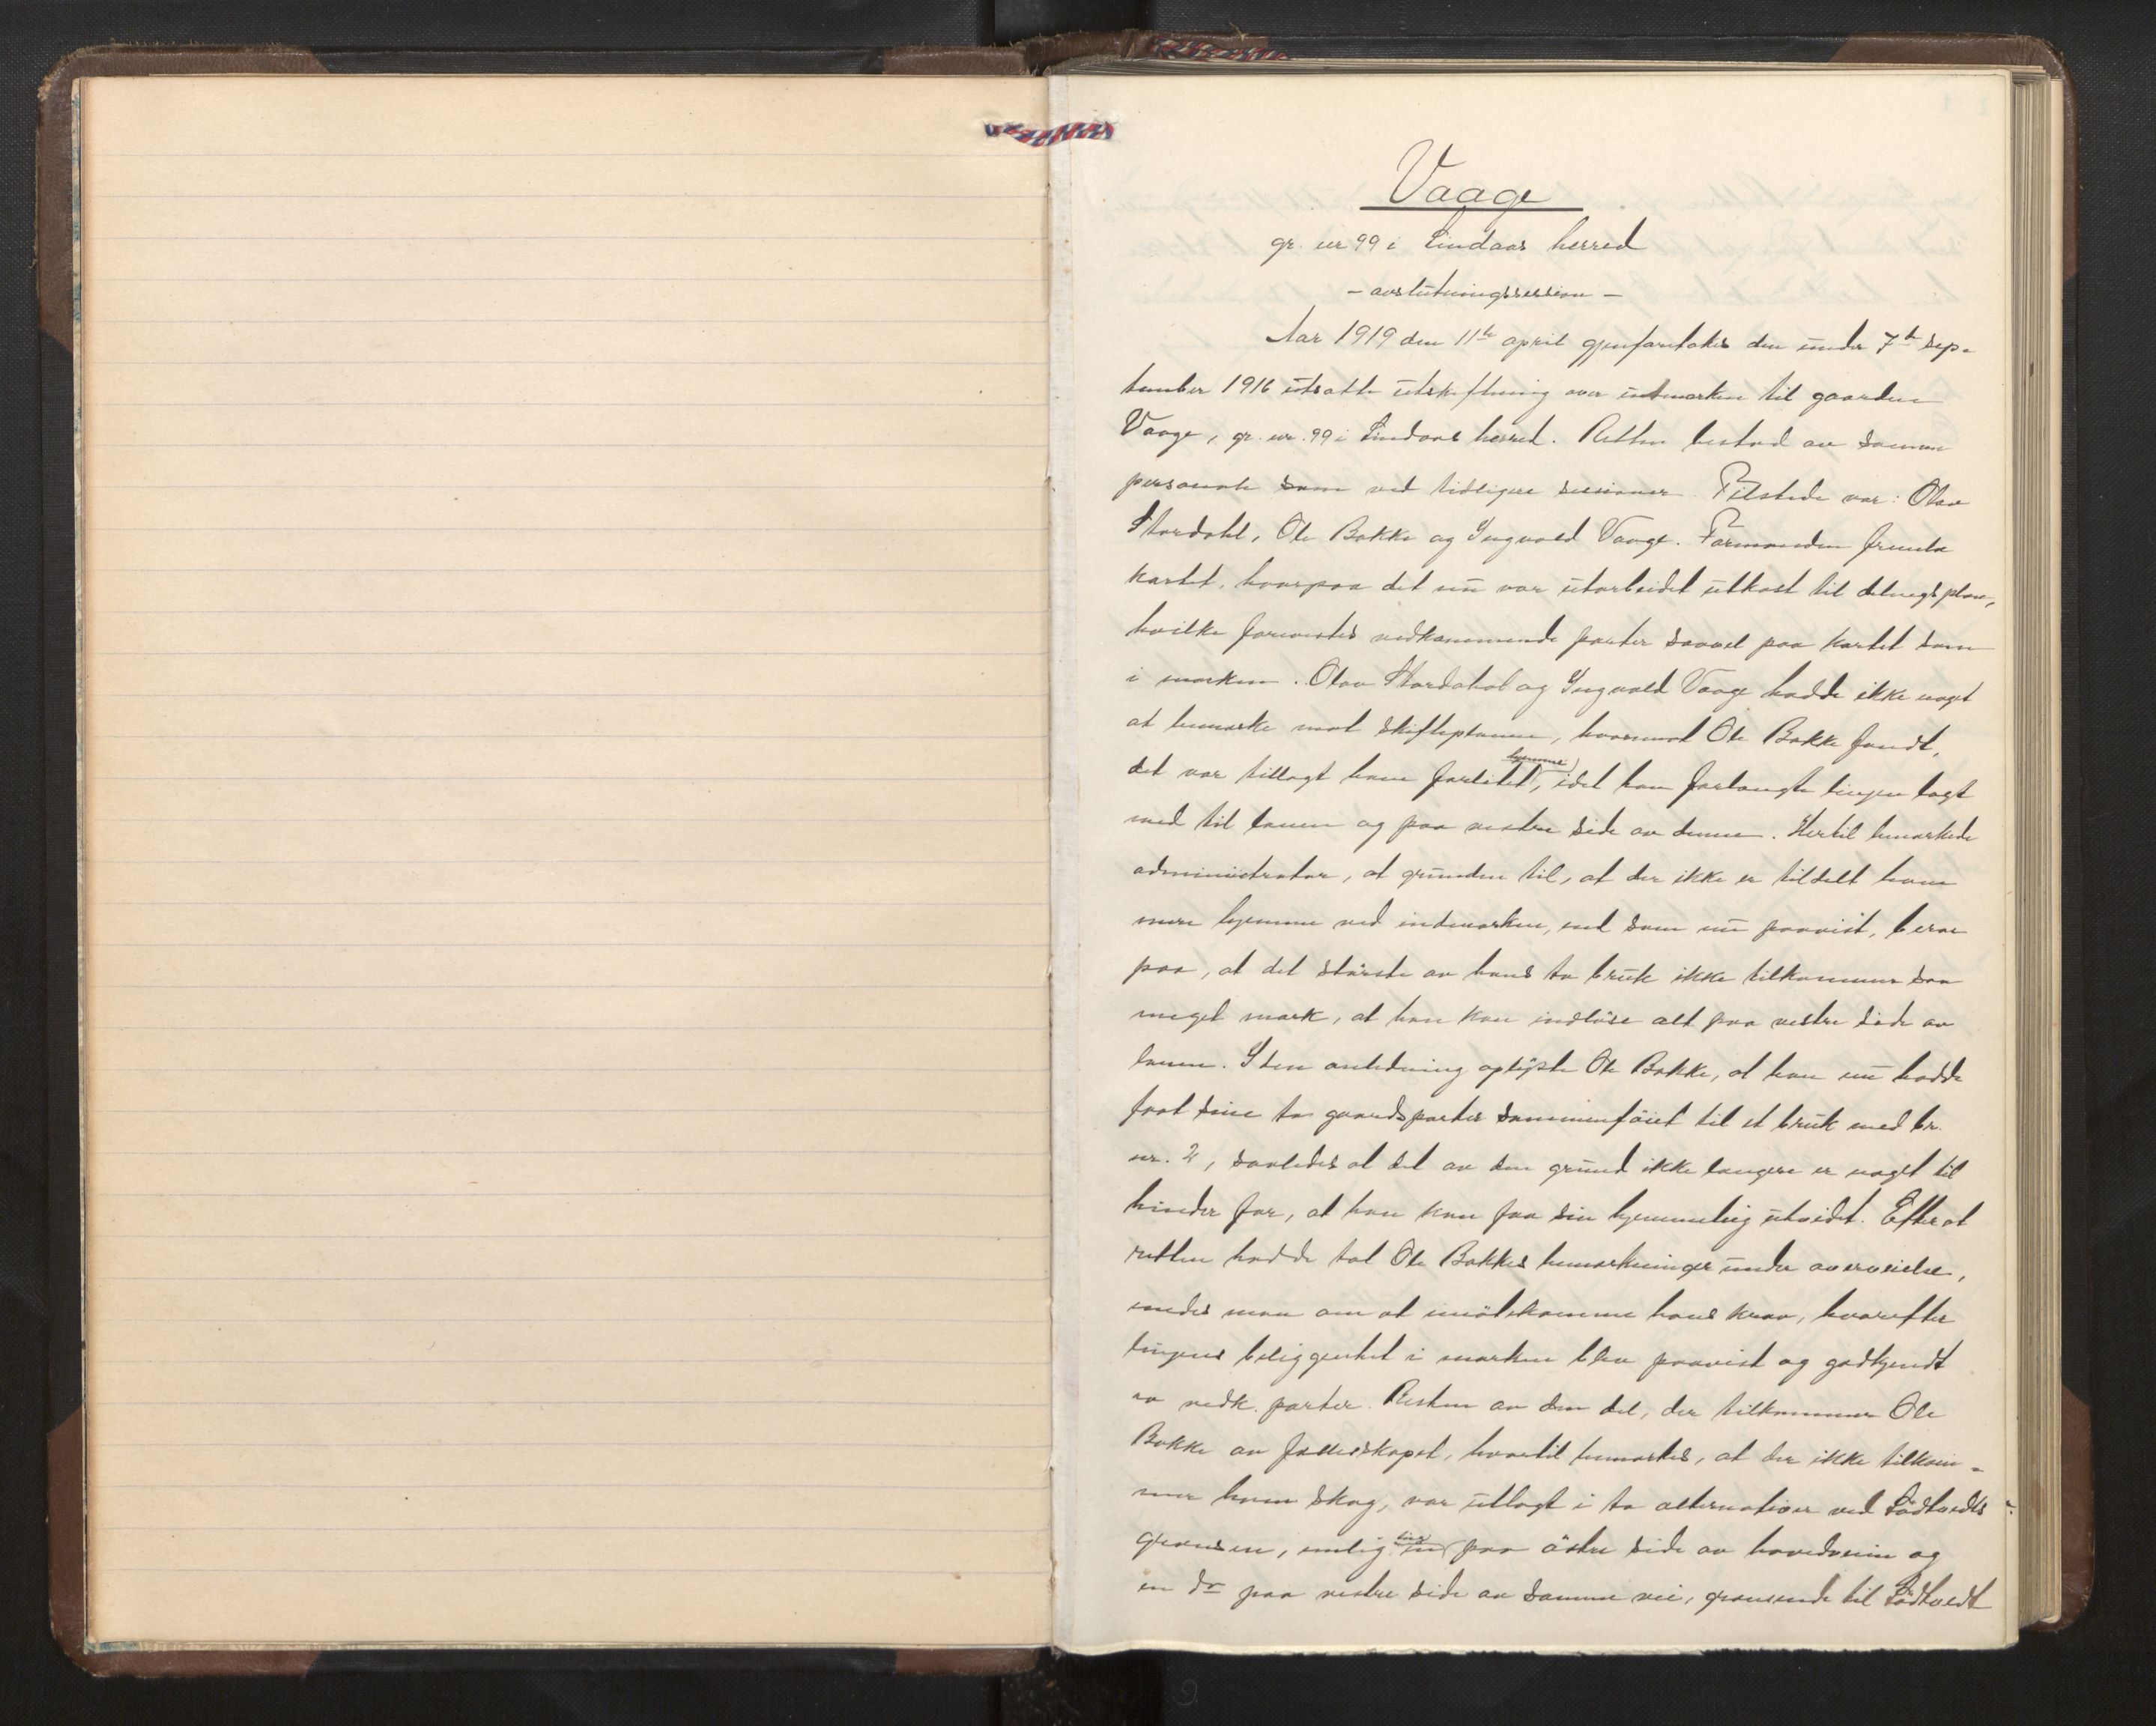 Vaage
gr. nr 99 i Lindaas herred
- avslutningssession -
Aar 1919 den 11te april gjenforetokes den under 7de sep-
tember 1916 utsatte utskiftning over utmarken til gaarden
Vaage, gr. nr. 99 i Lindaas herred. Retten bestod av samme
personale som ved tidligere sessioner. Tilstede var: Olav
Stordahl, Ole Bakke og Ingvald Vaage. Formanden fremla
kartet, hvorpaa det nu var utarbeidet utkast til delingsplan,
hvilke forevistes vedkommende parter saavel paa kartet som
i marken. Olav Stordahl og Ingvald Vaage hadde ikke noget
at bemerke mot skifteplanen, hvorimot Ole Bakke fandt,
det var tillagt ham forlitet hjemme, idet han forlangte linjen lagt
ned til lauen og paa vestre side av denne. Hertil bemerkede
administrator, at grunden til, at der ikke er tildelt ham
mere hjemme ved indmarken, end som nu paavist, beror
paa, at det største av hans to bruk ikke tilkommer saa
meget mark, at han kan indløse alt paa vestre side av
lauen. I den anledning oplyste Ole Bakke, at han nu hadde
faat sine to gaardsparter sammenføiet til et bruk med br.
nr. 2, saaledes at det av den grund ikke længere er noget til
hinder for, at han kan faa sin hjemmeteig utvidet. Efterat
retten hadde tat Ole Bakkes bemerkninger under overveielse,
enedes man om at imøtekomme hans krav, hvorefter
linjens beliggenhet i marken blev paavist og godkjendt
av vedk. parter. Resten av den del, der tilkommer Ole
Bakke av fællesskapet, hvortil bemerkes, at der ikke tilkom-
mer ham skog, var utlagt i to alternativer ved Lødtvedts-
grænsen, nemlig en paa østre side av hovedveien og
en do paa vestre side av samme vei, grænsende til Lødtvedt